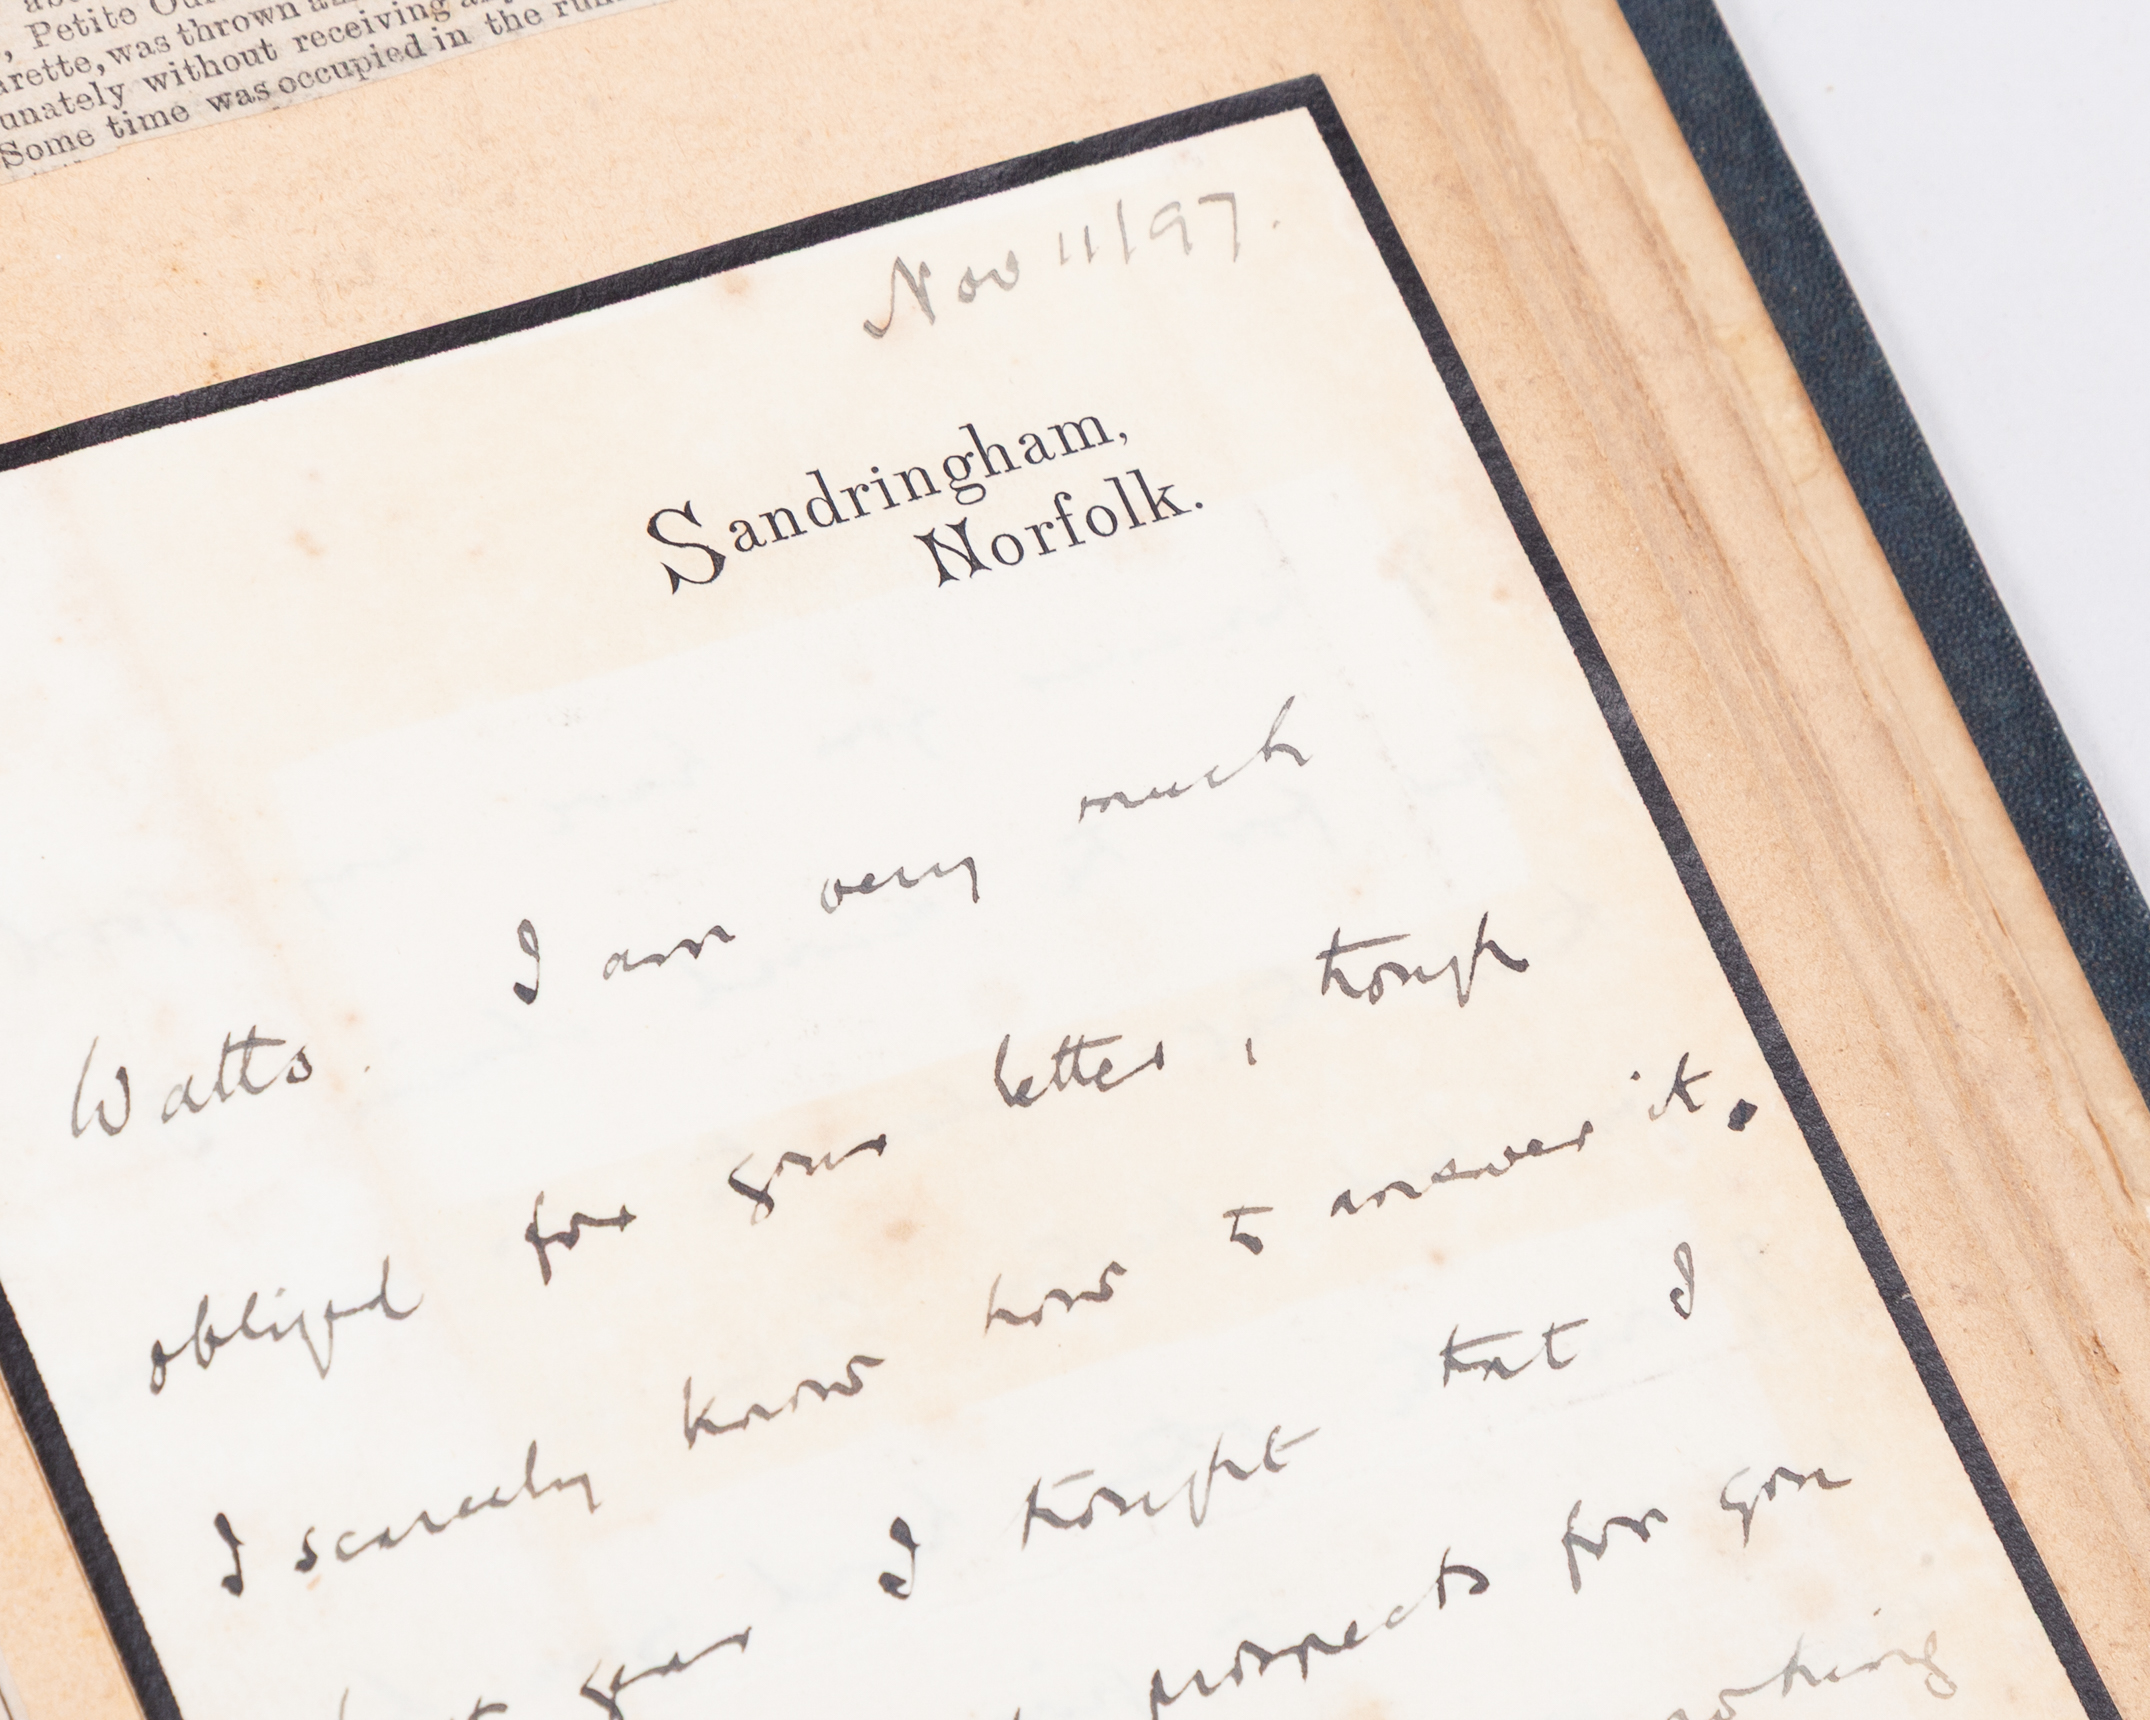 , Petite Ou
arette, was thrown
unately without receiving
Some time was occupied in the run
Nov 11/97.
Sandringham,
Norfolk.
Watts. I am very much
obliged for your letter, though
I scarcely know how to answer it.
year I thought that I
prospects for you
nothing